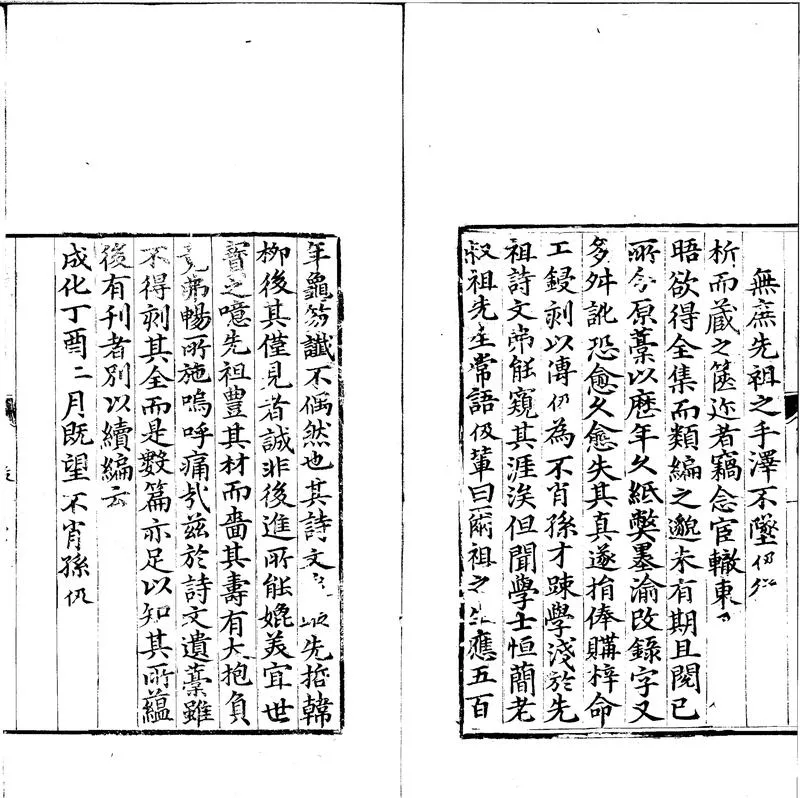 無庶先祖之手澤不墜仍
析而藏之篋迩者竊念宦轍東
晤欲得全集而類編之邈未有期且閱已
所令原藁以歷年久紙弊墨渝改錄字又
多舛訛恐愈久愈失其真遂捐俸購梓命
工鋟刻以傳仍為不肖孫才踈學淺於先
祖詩文弗能窺其涯涘但聞學士恒簡老
叔祖先生常語仍輩曰爾祖之生應五百
年龜筮讖不偶然也其詩文先哲韓
柳後其僅見者誠非後進所能媲美宜世
寳之噫先祖豐其材而嗇其壽有大抱負
竟弗暢所施嗚呼痛哉茲於詩文遺藁雖
不得刻其全而是數篇亦足以知其所蘊
後有刊者別以續編云
成化丁酉二月既望不肖孫仍